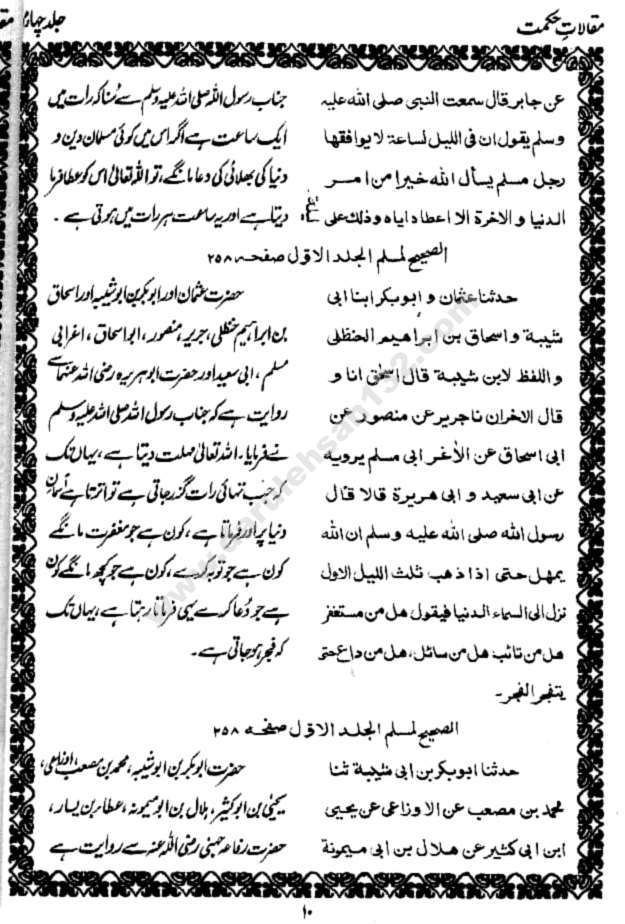 مقالاتِ حکمت
جلد چہارم
عن جابر قال سمعت النبی صلی الله علیه
وسلم یقول ان فی اللیل لساعة لا یوافقها
رجل مسلم یسأل الله خیرا من امر
الدنیا و الاخرة الا اعطاه ایاه وذلك علی
جناب رسول اللہ صلی اللہ علیہ وسلم سے سُنا کہ رات میں
ایک ساعت ہے اگر اس میں کوئی مسلمان دین و
دنیا کی بھلائی کی دعا مانگے، تو اللہ تعالیٰ اس کو عطا فرما
دیتا ہے اور یہ ساعت ہر رات میں ہوتی ہے ۔
الصحیح لمسلم الجلد الاوّل صفحہ ۲۵۸
حدثنا عثمان و ابوبکر ابنا ابی
شیبة و اسحاق بن ابراهیم الحنظلی
و اللفظ لابن شیبة قال اسحٰق انا و
قال الاخران نا جریر عن منصور عن
ابی اسحاق عن الأغر ابی مسلم یرویه
عن ابی سعید و ابی هریرة قالا قال
رسول الله صلی الله علیه وسلم ان الله
یمهل حتی اذا ذهب ثلث اللیل الاول
نزل الی السماء الدنیا فیقول هل من مستغفر
هل من تائب هل من سائل، هل من داع حتی
ینفجر الفجر۔
حضرت عثمان اور ابوبکر بن ابو شیبہ اور اسحاق
بن ابراہیم حنظلی، جریر، منصور، ابو اسحاق، اغرابی
مسلم، ابی سعید اور حضرت ابو ہریرہ رضی اللہ عنہما سے
روایت ہے کہ جناب رسول اللہ صلی اللہ علیہ وسلم
نے فرمایا۔ اللہ تعالیٰ مہلت دیتا ہے، یہاں تک
کہ جب تہائی رات گذر جاتی ہے تو اترتا ہے آسمان
دنیا پر اور فرماتا ہے، کون ہے جو مغفرت مانگے
کون ہے جو توبہ کرے، کون ہے جو کچھ مانگے کون
ہے جو دُعا کرے یہی فرماتا رہتا ہے، یہاں تک
کہ فجر ہو جاتی ہے۔
الصحیح لمسلم الجلد الاوّل صفحہ ۲۵۸
حدثنا ابوبکر بن ابی شیبة ثنا
محمد بن مصعب عن الاوزاعی عن یحیی
ابن ابی کثیر عن هلال بن ابی میمونة
حضرت ابوبکر بن ابو شیبہ، محمد بن مصعب، اوزاعی،
یحییٰ بن ابو کثیر، ہلال بن ابو میمونہ، عطار بن یسار،
حضرت رفاعہ جہنی رضی اللہ عنہ سے روایت ہے
۱۰